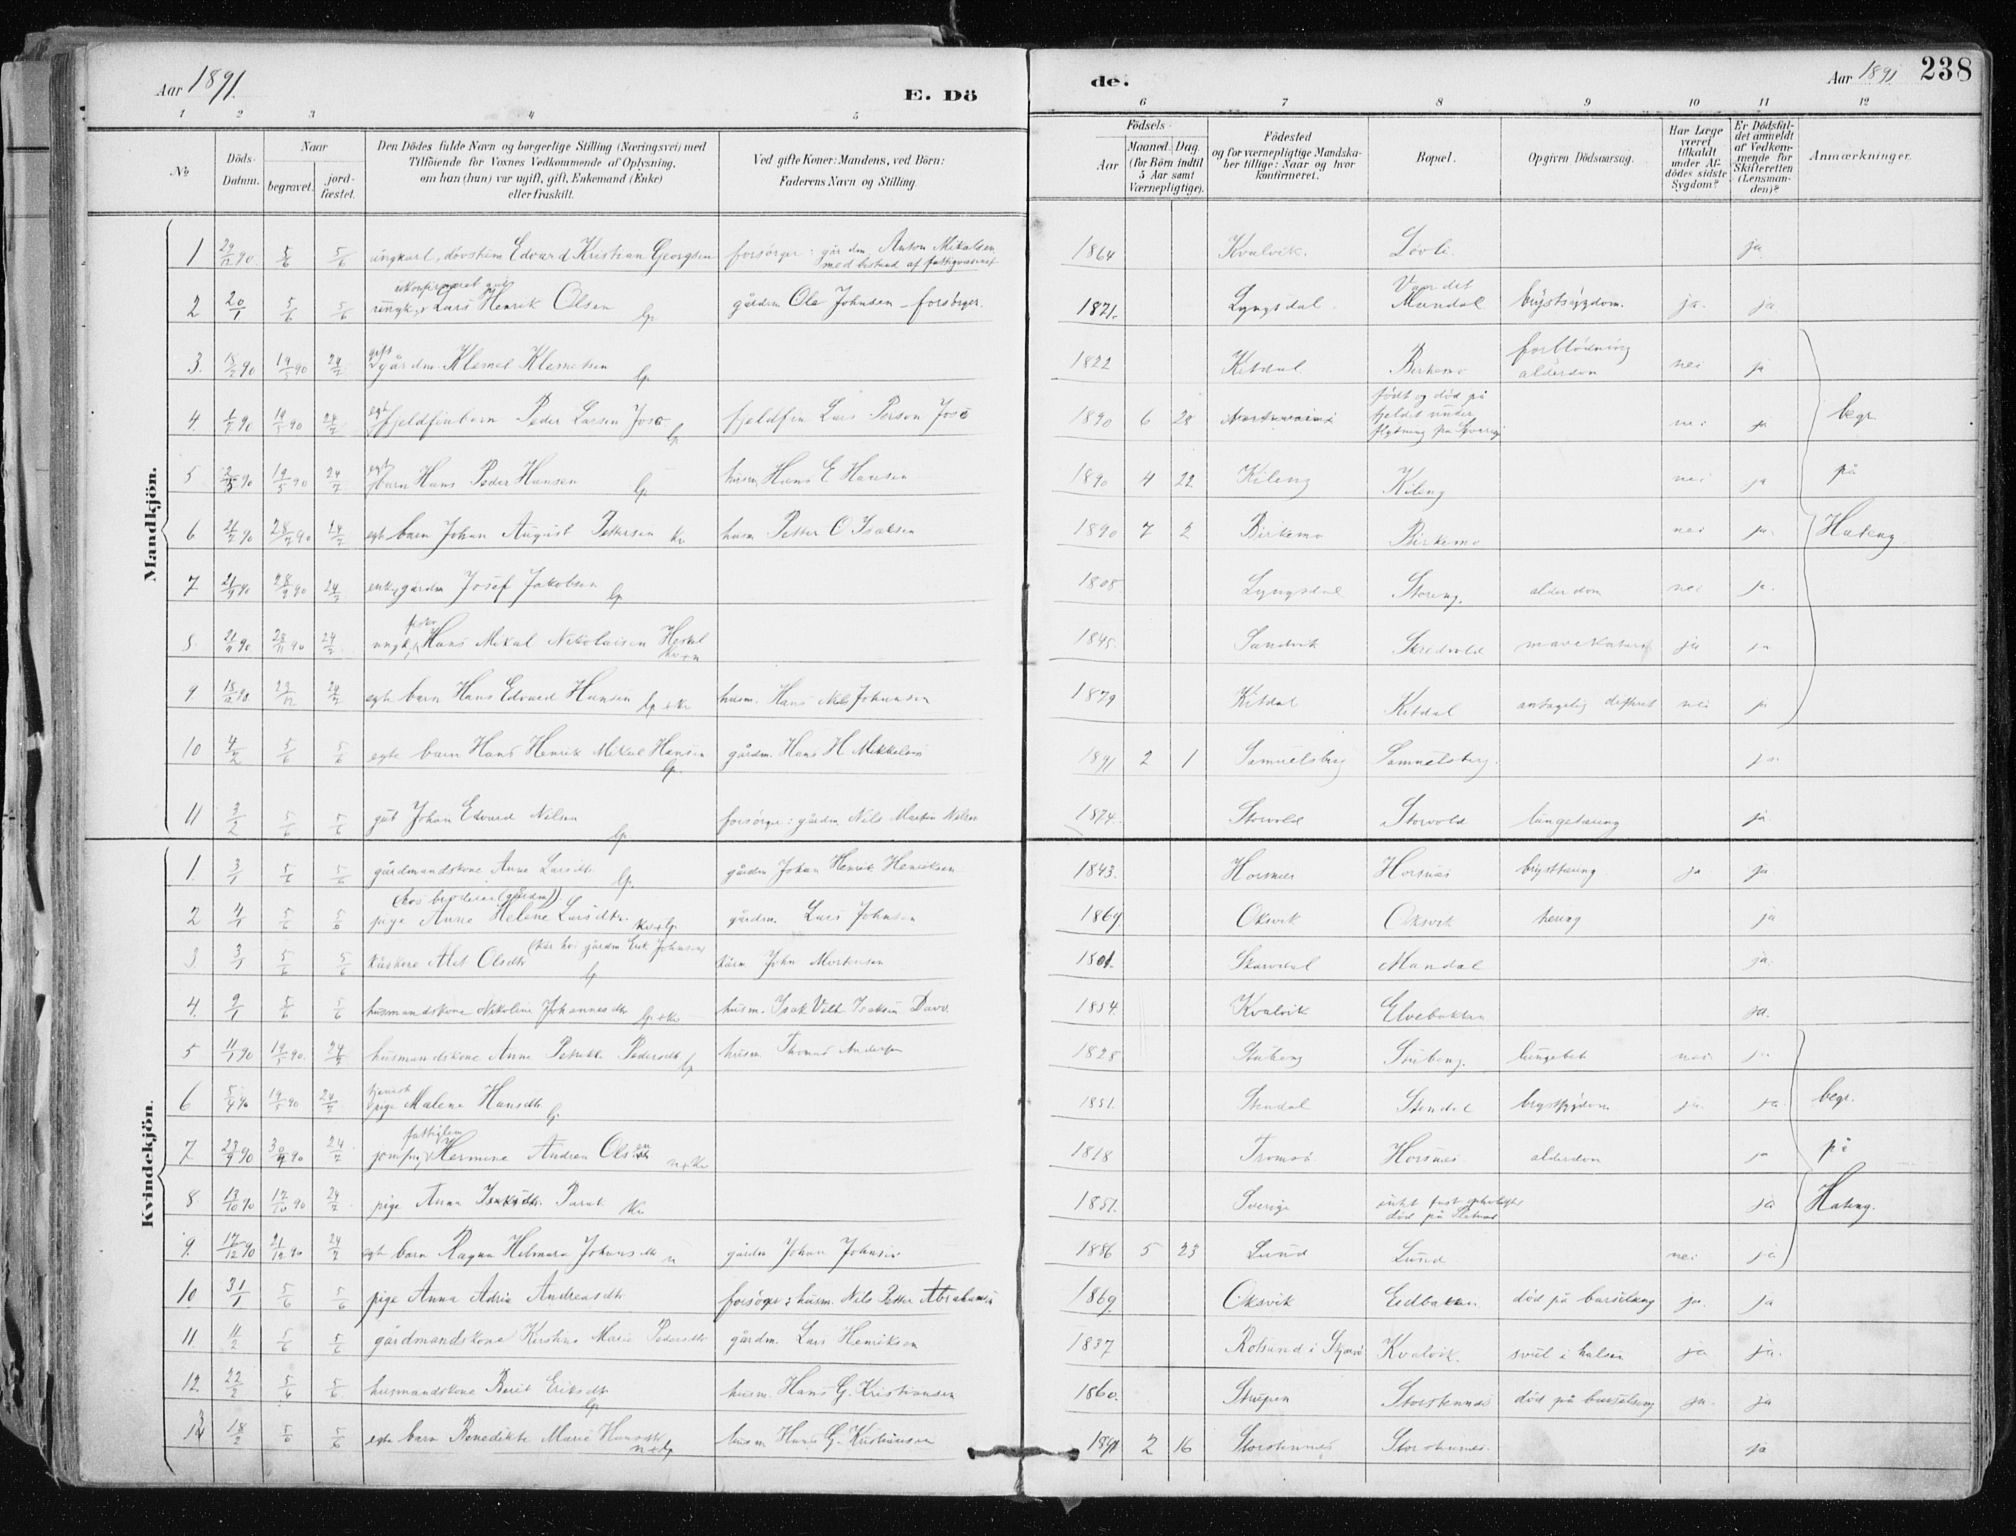 Aar 1891. E. Dö
de. Aar 1891 238
1 2 3 4 5 6 7 8 9 10 11 12
No Döds-Datum. Naar begravet. jordfæstet. Den Dödes fulde Navn og borgerlige Stilling (Næringsvei) med Tilföiende for Voxnes Vedkommende af Oplysning, om han (hun) var ugift, gift, Enkemand (Enke) eller fraskilt. Ved gifte Koner: Mandens, ved Börn: Faderens Navn og Stilling.
Födsels- Aar Maaned. Dag. (for Börn indtil 5 Aar samt Værnepligtige). Födested og for værnepligtige Mandskaber tillige: Naar og hvor konfirmeret. Bopæl. Opgiven Dödsaarsag. Har Læge været tilkaldt under Afdödes sidste Sygdom? Er Dödsfaldet anmeldt af Vedkommende for Skifteretten (Lensmanden)? Anmærkninger.
Mandkjön.
1 29/12 90 5/6 5/6 ungkarl, døvstum Edvard Kristian Georgsen forsörger: gårdm. Anton Mikalsen med bistand af fattigvæsenet 1864 Kvalvik. Løvli. ja
2 20/1 5/6 5/6 ungk. Lars Henrik Olsen lp gårdm Ole Johnsen - forsörger. 1871. Lyngsdal Mandal brystsygdom. ja. ja
3. 90 19/5 90 24/2 gift gårdm. Klemet Klemetsen lp 1822 Kitdal Birkemo forblödning alderdom nei ja
4. 90 19/5 90 24/2 egte fjeldfinbarn Peder Larsen lp fjeldfin Lars Person 1890 6 28 født og død på fjeldet under flytning fra Sverrig nei ja
5 90 19/5 90 24/2 egte barn Hans Peder Hansen lp husm Hans E Hansen 1890 4 22 Kileng Kileng nei ja
6 90 90 24/2 egte barn Johan August Pettersen kv husm Petter O Isaksen 1890 7 2 Birkemo Birkemo nei ja.
7 90 90 24/2 enkem gårdm Josef Jakobsen lp 1808 Lyngsdal Storeng. alderdom nei ja.
8. 90 28/11 90 24/2 ungk. Hans Mikal Nikolaisen 1845. Sandvik Skredvold mavekatarr ja ja
9 18/12 90. 24/2 egte barn Hans Edvard Hansen lp + kv husm. Hans Nils Johansen 1879 Kitdal Kitdal antagelig difterit nei ja
begr. på Hateng
10 4/2 5/6 5/6 egte barn Hans Henrik Mikal Hansen lp. gårdm. Hans H Mikkelsen 1891 2 1 Samuelsberg Samuelsberg. ja
11 3/2 5/6 5/6 gut Johan Edvard Nilsen lp forsörger: gårdm Nils Martin Nilsen 1874. Storvold Storvold lungetæring ja
Kvindekjön.
1. 3/1 5/6 5/6 gårdmandskone Anne Larsdtr. lp. gårdm Johan Henrik Henriksen 1843. Horsnes Horsnes brysttæring ja ja
2 4/1 5/6 5/6 (hos broderen (gårdm)) pige Anne Helene Larsdtr. kv+lp. gårdm. Lars Johnsen 1869 Oksvik Oksvik tæring ja
3 3/1 5/6 5/6 Alet Olsdtr (kår hos gårdm Erik Johnsen) lp kårm John Mortensen 1801. Skarvdal Mandal ja.
4. 9/1 5/6 5/6 husmandskone Nikoline Johannesdtr lp+kv husm. Isak Isaksen 1854 Kvalvik Elvebakken ja.
5 90 19/5 90. 24/2 husmandskone Anne Petrikke Pedersdtr lp husm Thomas Andersen 1828 Stubeng Stubeng. nei ja
6 5/4 90 19/5 90 24/2 tjenest pige Malene Hansdtr. lp 1851. Stendal Stendal brystsygdom ja. ja.
7 23/9 90 90 24/2 fattiglem jomfru Hermine Andrea Olsen n+kv 1818 Tromsö Horsnes alderdom ja
8 13/10 90 17/10 90 24/2 pige Anna Isaksdtr. kv 1851. Sverige intet fast opholdssted død på ja
9. 17/12 90 21/12 90 24/2 egte barn Ragna Helmara Johansdtr n gårdm Johan Johnsen 1886 5 23 Lund Lund nei ja
begr. på Hateng.
10 31/1 5/6 5/6 pige Anna Adria Andreasdtr forsörger: husm. Nils Petter Abrahamsen 1869 Oksvik Eidbakken død på barselseng ja. ja
11 11/2 5/6 5/6 gårdmandskone Kirstine Marie Pedersdtr gårdm. Lars Henriksen 1837 Rotsund i Skjærvö Kvalvik. svul i halsen ja ja.
12 22/2 5/6 5/6 husmandskone Berit Eriksdtr lp husm. Hans G. Kristiansen 1860. Strupen Storstennes død på barselseng ja. ja
13 18/2 5/6 5/6 egte barn Benedikte Marie Hansdtr n+lp husm Hans G. Kristiansen 1891 2 16 Storstennes Storstennes. ja